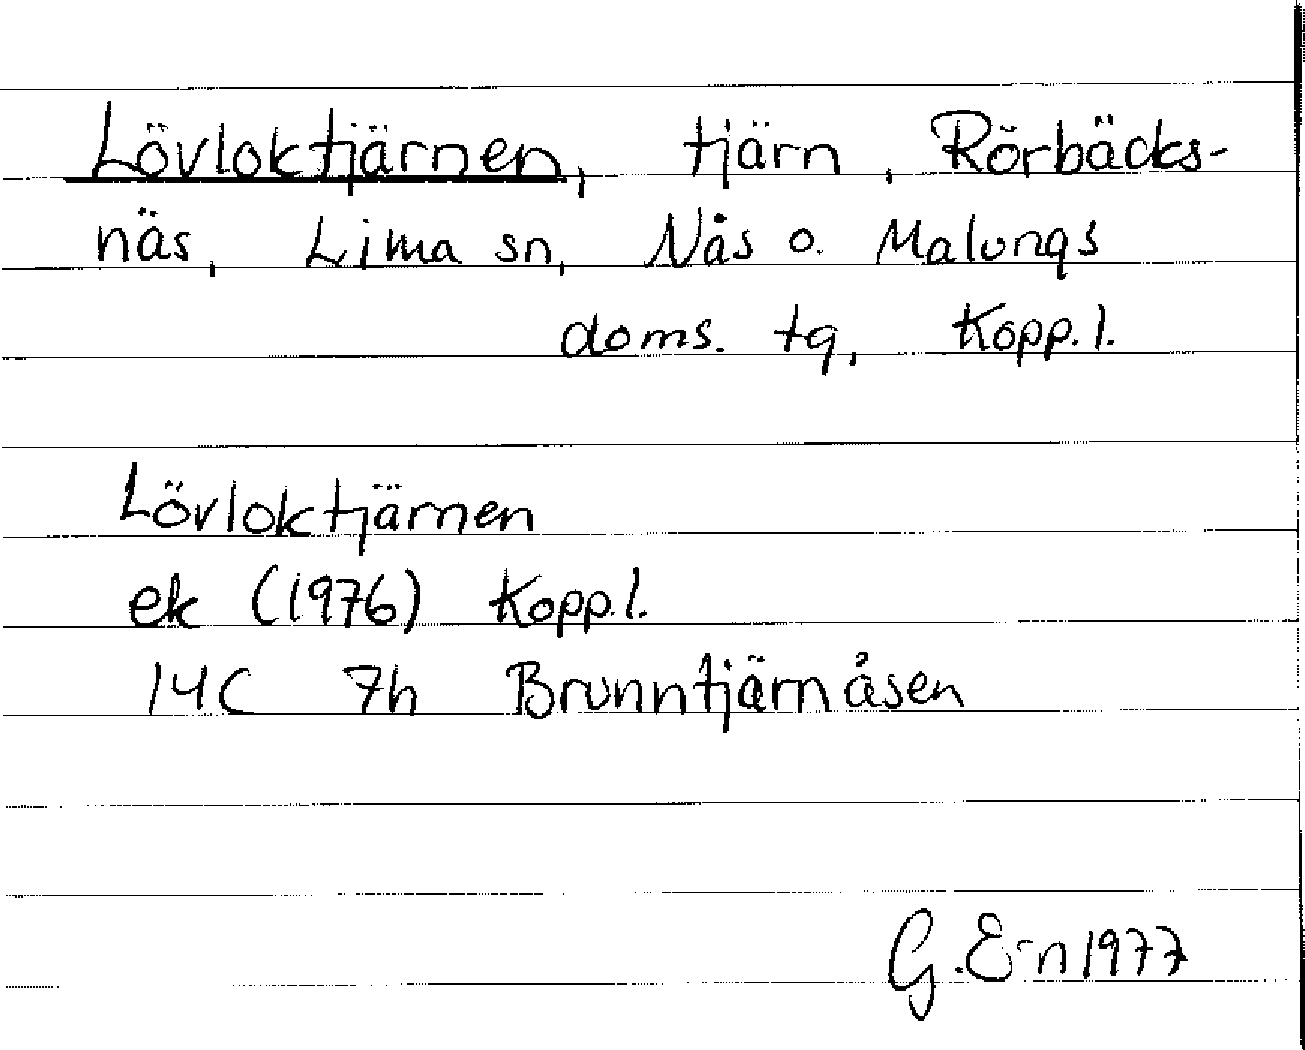 Lövloktjärnen, tjärn, Rörbäcks-
näs, Lima sn, Nås o. Malungs
doms. tg, Kopp. l.
Lövloktjärnen
ek (1976) Kopp. l.
14C 7h Brunntjärnåsen
G. E-n 1977